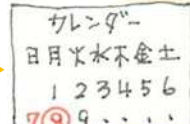 カレンダー
日月火水木金土
1 2 3 4 5 6
7 8 9 . . . .